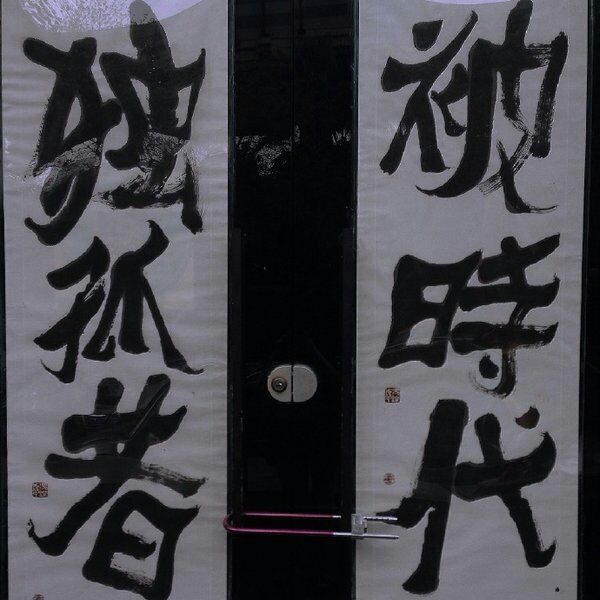 被時代
独孤者